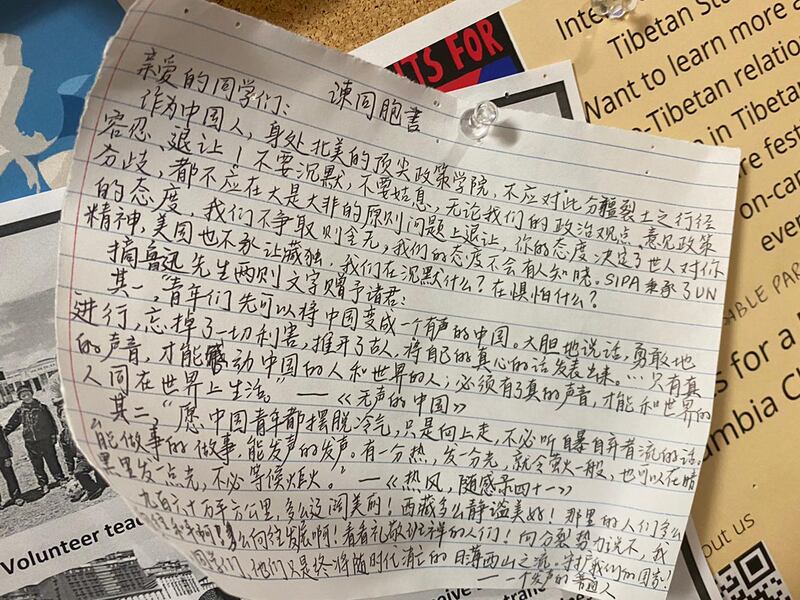 諫同胞書
亲爱的同学们：
作为中国人，身处北美的顶尖政策学院，不应对此分疆裂土之行径
容忍、退让！不要沉默，不要姑息，无论我们的政治观点、意见政策
分歧，都不应在大是大非的原则问题上退让，你的态度决定了世人对你
的态度，我们不争取则全无，我们的态度不会有人知晓。SIPA秉承了UN
精神，美国也不承认藏独，我们在沉默什么？在惧怕什么？
摘鲁迅先生两则文字赠予诸君：
其一，“青年们先可以将中国变成一个有声的中国。大胆地说话，勇敢地
进行，忘掉了一切利害，推开了古人，将自己的真心的话发表出来。…只有真
的声音，才能感动中国的人和世界的人；必须有了真的声音，才能和世界的
人同在世界上生活。”——《无声的中国》
其二，“愿中国青年都摆脱冷气，只是向上走，不必听自暴自弃者流的话。
能做事的做事，能发声的发声。有一分热，发一分光，就令萤火一般，也可以在暗
黑里发一点光，不必等候炬火。”——《热风，随感录四十一》
九百六十万平方公里，多么辽阔美丽！西藏多么静谧美好！那里的人们多么
向往发展啊！看看礼敬班禅的人们！向分裂势力说不，我
同学们，他们只是终将随时代消亡的日薄西山之流。守护我们的国家！
——一个发声的普通人
NTS FOR
Inte
Tibetan Stu
Want to learn more a
o-Tibetan relatio
in Tibetan
re festi
on-car
even
SABLE PAR
s for a
umbia Ch
out us
Volunteer teac